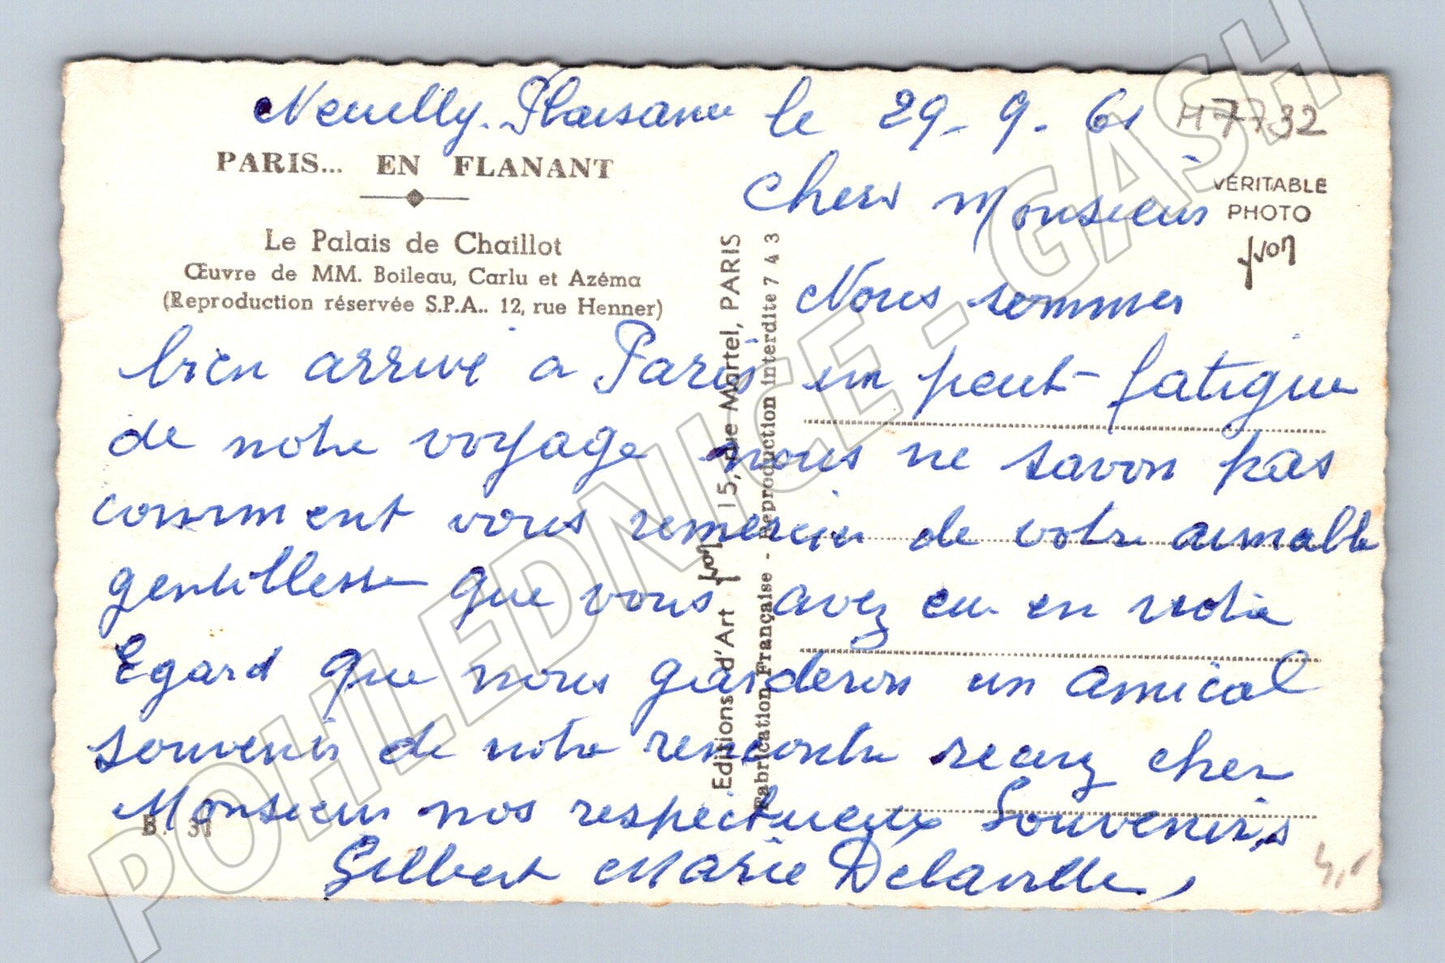 Neuilly-Plaisance le 29-9-61
H7732
PARIS... EN FLANANT
Le Palais de Chaillot
Œuvre de MM. Boileau, Carlu et Azéma
(Reproduction réservée S.P.A.. 12, rue Henner)
VÉRITABLE
PHOTO
yvon
Chers Monsieur
Nous sommes
bien arrivé a Paris un peut fatigue
de notre voyage nous ne savon pas
comment vous remercier de votre aimable
gentillesse que vous avez eu en notre
Egard que nous garderons un amical
souvenir de notre rencontre recevez cher
Monsieur nos respectueux Souvenirs
Gilbert Marie Delaville
Editions d'Art yvon 15, rue Martel, PARIS
Fabrication Française - Reproduction interdite 743
B. 31
POHLEDNICE - GASH